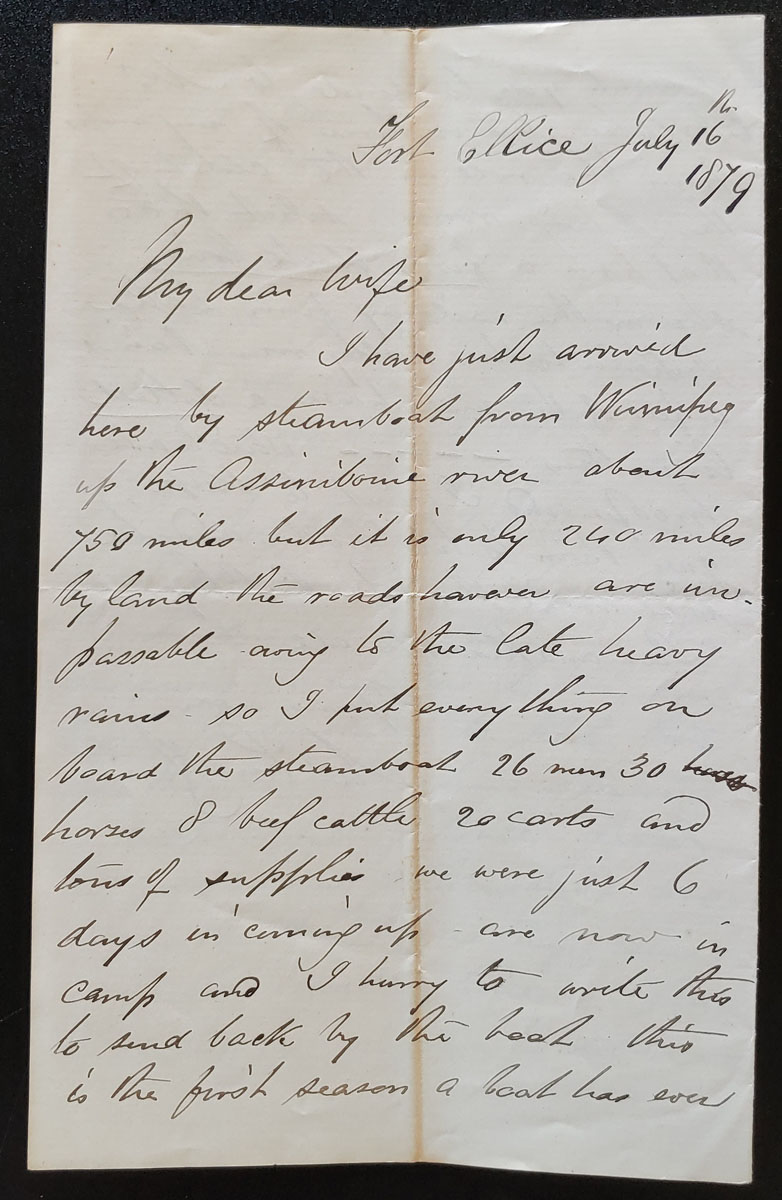 Fort Ellice July 16th
1879
My dear Wife
I have just arrived
here by steamboat from Winnipeg
up the Assiniboine river about
750 miles but it is only 240 miles
by land the roads however are im-
passable owing to the late heavy
rains - so I put everything on
board the steamboat 26 men 30
horses 8 beef cattle 20 carts and
tons of supplies we were just 6
days in coming up - are now in
camp and I hurry to write this
to send back by the boat this
is the first season a boat has ever